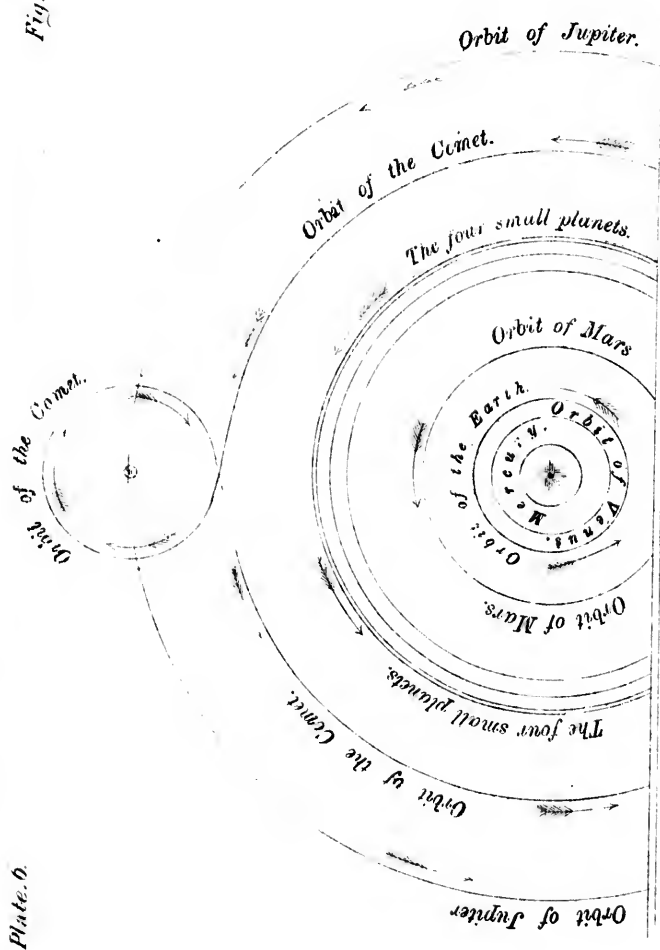 Fig.
Orbit of Jupiter.
Orbit of the Comet.
The four small planets.
Orbit of Mars
Orbit of the Comet.
Orbit of the Earth.
Orbit of Venus.
Mercury.
Orbit of Mars.
The four small planets.
Orbit of the Comet.
Orbit of Jupiter
Plate.6.